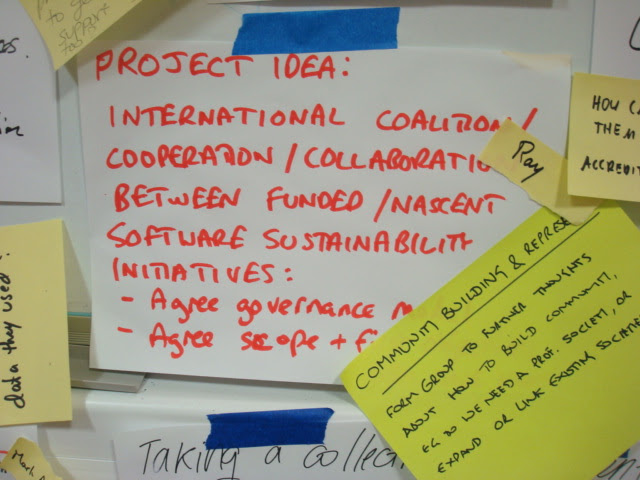 to ge
support
PROJECT IDEA:
INTERNATIONAL COALITION/
COOPERATION/COLLABORATIO
BETWEEN FUNDED/NASCENT
SOFTWARE SUSTAINABILITY
INITIATIVES:
- Agree governance
- Agree scope + f
Ray
HOW CA
THEM
ACCREDIT
COMMUNITY BUILDING & REPRESE
FORM GROUP TO FURTHER THOUGHTS
ABOUT HOW TO BUILD COMMUNITY,
EG DO WE NEED A PROF. SOCIETY, OR
EXPAND OR LINK EXISTING SOCIETIES
data they used?
Mark
Taking a collec